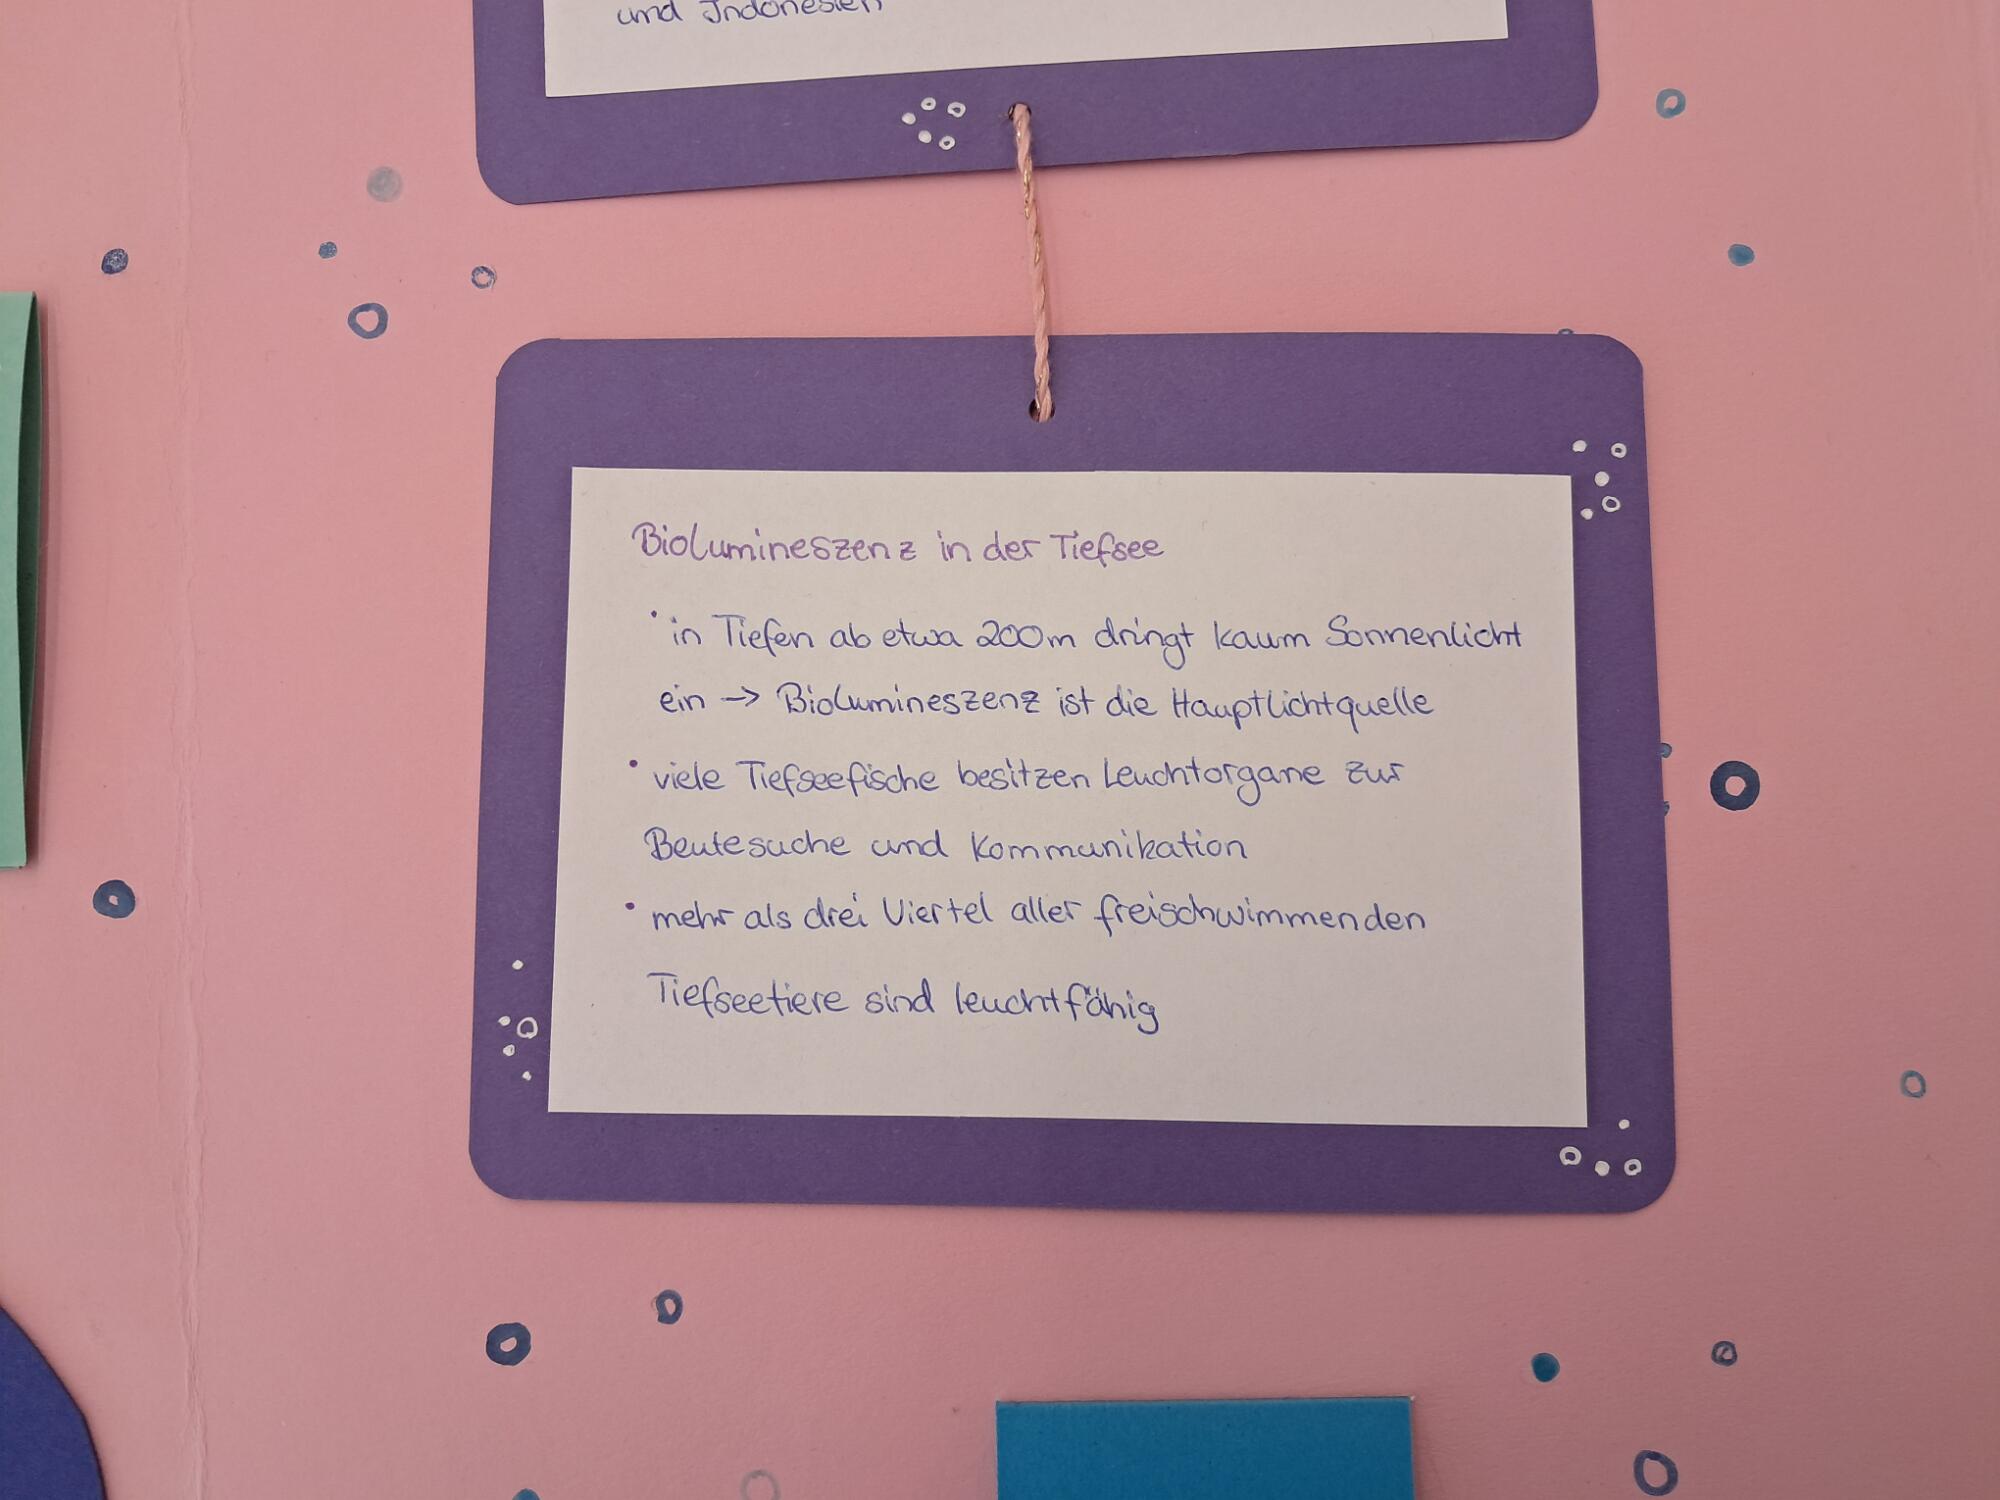 und Indonesien
Biolumineszenz in der Tiefsee
• in Tiefen ab etwa 200m dringt kaum Sonnenlicht
ein -> Biolumineszenz ist die Hauptlichtquelle
• viele Tiefseefische besitzen Leuchtorgane zur
Beutesuche und Kommunikation
• mehr als drei Viertel aller freischwimmenden
Tiefseetiere sind leuchtfähig